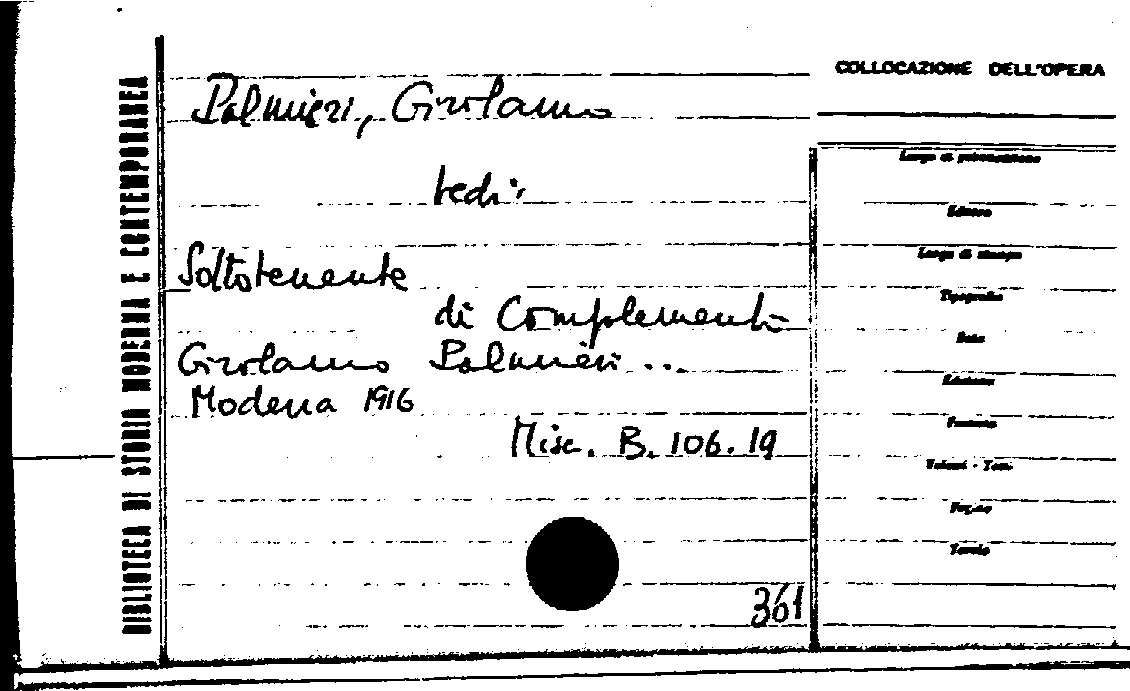 BIBLIOTECA DI STORIA MODERNA E CONTEMPORANEA
COLLOCAZIONE DELL'OPERA
Palmieri, Girolamo
vedi:
Sottotenente
di Complemento
Girolamo Palmieri...
Modena 1916
Misc. B. 106. 19
361
Luogo di pubblicazione
Editore
Luogo di stampa
Tipografia
Data
Edizione
Formato
Volumi - Tomi
Pagine
Tavole